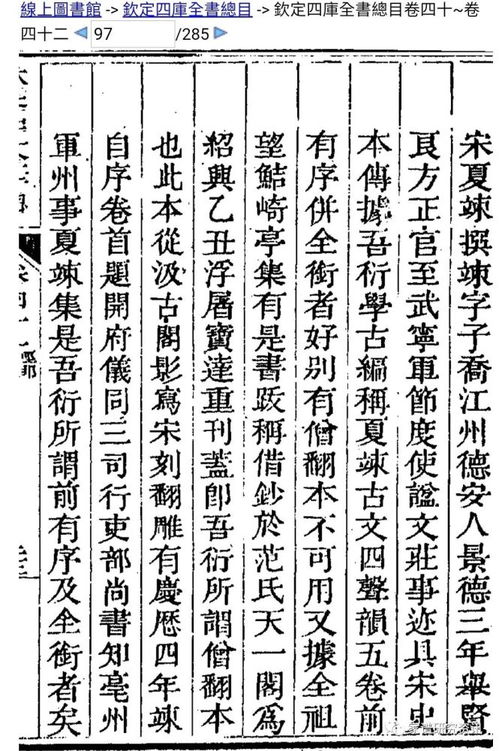 線上圖書館 -> 欽定四庫全書總目 -> 欽定四庫全書總目卷四十~卷
四十二 97 /285
宋夏竦撰竦字子喬江州德安人景德三年舉賢
良方正官至武寧軍節度使諡文莊事迹具宋史
本傳據吾衍學古編稱夏竦古文四聲韻五卷前
有序併全銜者好别有僧翻本不可用又據全祖
望鮚崎亭集有是書跋稱借鈔於范氏天一閣爲
紹興乙丑浮屠寶達重刊蓋卽吾衍所謂僧翻本
也此本從汲古閣影寫宋刻翻雕有慶厯四年竦
自序卷首題開府儀同三司行吏部尚書知亳州
軍州事夏竦集是吾衍所謂前有序及全銜者矣